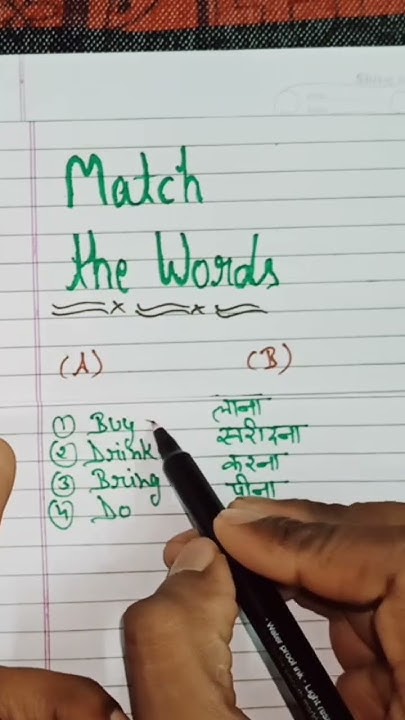 Match
the Words
(A) (B)
① Buy लाना
② Drink खरीदना
③ Bring करना
④ Do पीना
Water proof ink - Light